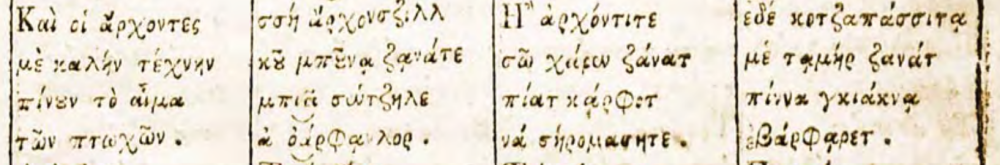 Καὶ οἱ ἄρχοντες
μὲ καλὴν τέχνην
πίνουν τὸ αἷμα
τῶν πτωχῶν .
σσὴ ἄρχονσζιλλ
κοῦ μποῦνα ζανάτε
μπιᾶ σώτζηλε
ἀ οάρφανλορ .
Ἠ ἀρχόντιτε
σῶ χάρον ζάνατ
πίατ κάρφοτ
νά σήρομασητε .
ἐδέ κοτζαπάσσιτα
μὲ ταμὴρ ζανάτ
πίννα γκιάκνα
ἐβάρφαρετ .